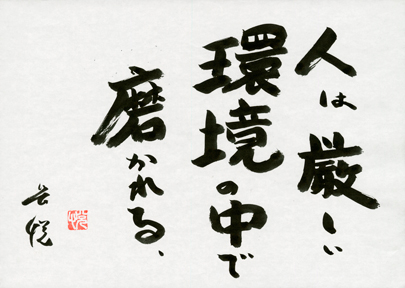 人は厳しい
環境の中で
磨かれる、